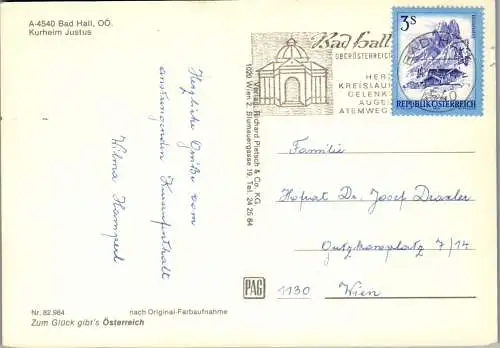 A-4540 Bad Hall, OÖ.
Kurheim Justus
Herzliche Grüße vom
anstrengenden Kuraufenthalt
Wilma Hamperl
Nr. 82.984
nach Original-Farbaufnahme
Zum Glück gibt's Österreich
Verlag: Richard Pietsch & Co. KG.
1020 Wien 2, Blumauergasse 19, Tel. 24 25 84
PAG
Bad Hall
OBERÖSTERREICH
HERZ
KREISLAUF
GELENK
AUGEN
ATEMWEG
3S
REPUBLIK ÖSTERREICH
BAD HALL
4540
Familie
Hofrat Dr. Josef Draxler
Gutzkowplatz 7/14
1130 Wien